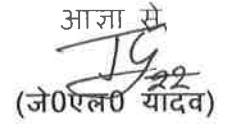 आज्ञा से
22
(जे0एल0 यादव)